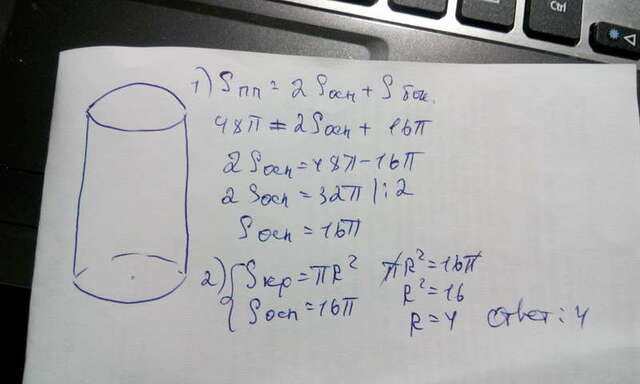 Ctrl
1) Sпп = 2 Sосн + S бок.
48π = 2Sосн + 16π
2Sосн = 48π - 16π
2 Sосн = 32π |:2
Sосн = 16π
2) { Sкр = πR² πR² = 16π
Sосн = 16π R² = 16
R = 4 Ответ: 4